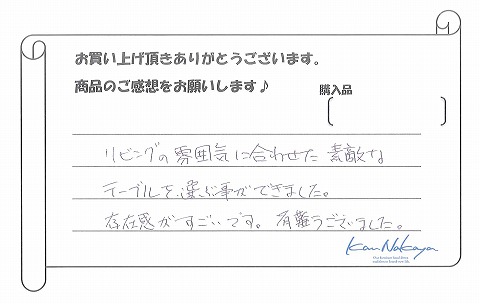 お買い上げ頂きありがとうございます。
商品のご感想をお願いします♪
購入品
リビングの雰囲気に合わせた 素敵な
テーブルを選ぶ事ができました。
存在感がすごいです。有難うございました。
Kan Nakaya